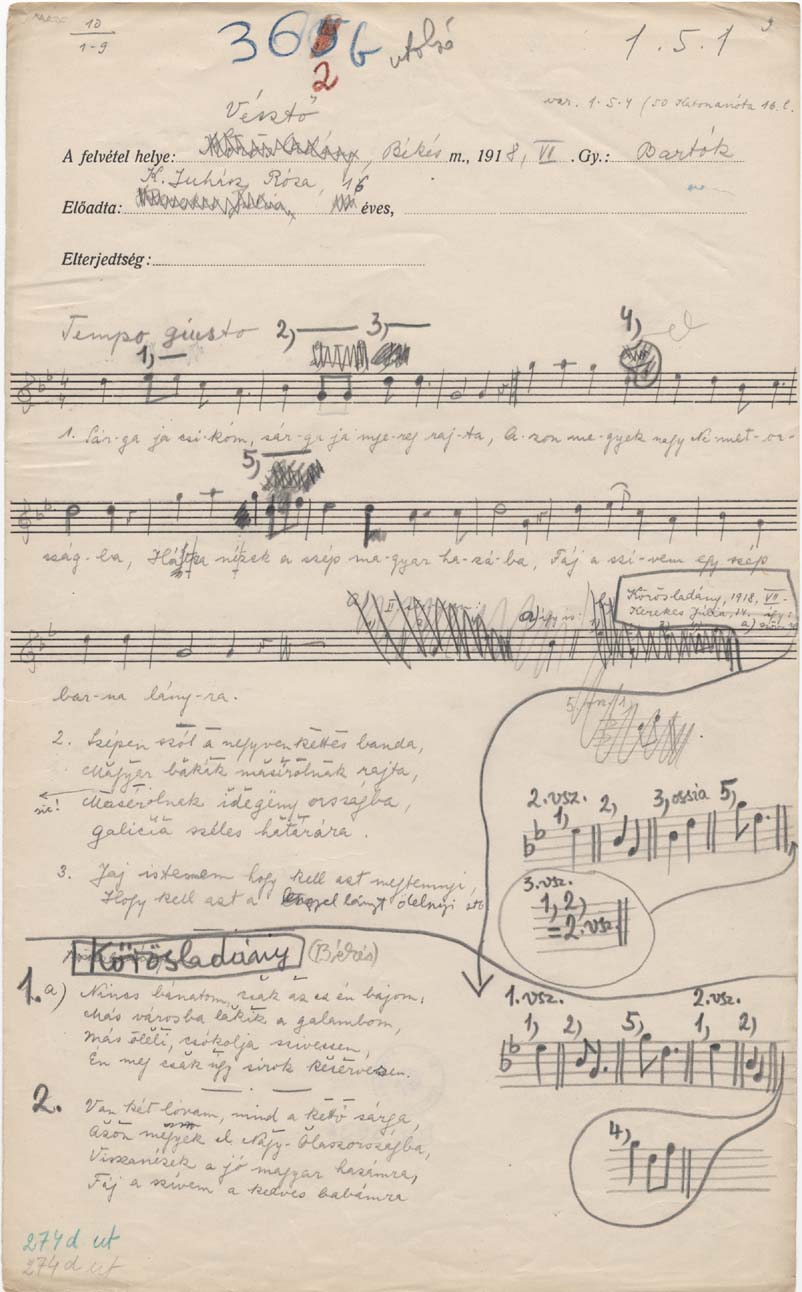 10
1-9
365b utolsó
2
1.5.1
Vésztő
var. 1.5.4 (50 Katonanóta 16.l.
A felvétel helye: , Békés m., 1918, VI .Gy.: Bartók
K. Juhász Rózsa, 16
Előadta: éves,
Elterjedtség:
Tempo giusto 1, 2) 3, 4,
1. Sár-ga já csi-kóm, sár-ga já nye-reg raj-ta, A-zon me-gyek nagy Né-met-or-
5,
ság-ba, nézek a szép ma-gyar ha-zá-ba, Fáj a szí-vem egy szép
a) így is:
Körösladány, 1918, VII-
Kerekes
bar-na lány-ra.
2. Szépen szól a negyvenkettes banda,
Magyar bakák masíroĺnak rajta,
sic! Masérolnak idegëny országba,
galicia széles határára.
2. vsz.
1, 2, 3, ossia 5,
3. Jaj istenem hogy kell azt megtennyi,
Hogy kell azt a lányt ölelnyi stb
3. vsz.
1, 2,
= 2. vsz.
Körösladány (Békés)
1. a) Nincs bánatom, csak az az én bajom,
Más városba lakik a galambom,
Más öleli, csókolja szivessen,
Én meg csak úgy sírok keservesen.
1. vsz. 2. vsz.
1, 2, 5, 1, 2)
2. Van két lovam, mind a kettő sárga,
Azon mëgyëk el Nagy-Olaszországba,
Visszanézek a jó magyar hazámra,
Fáj a szívem a kedves babámra
4,
274d ut
274d ut